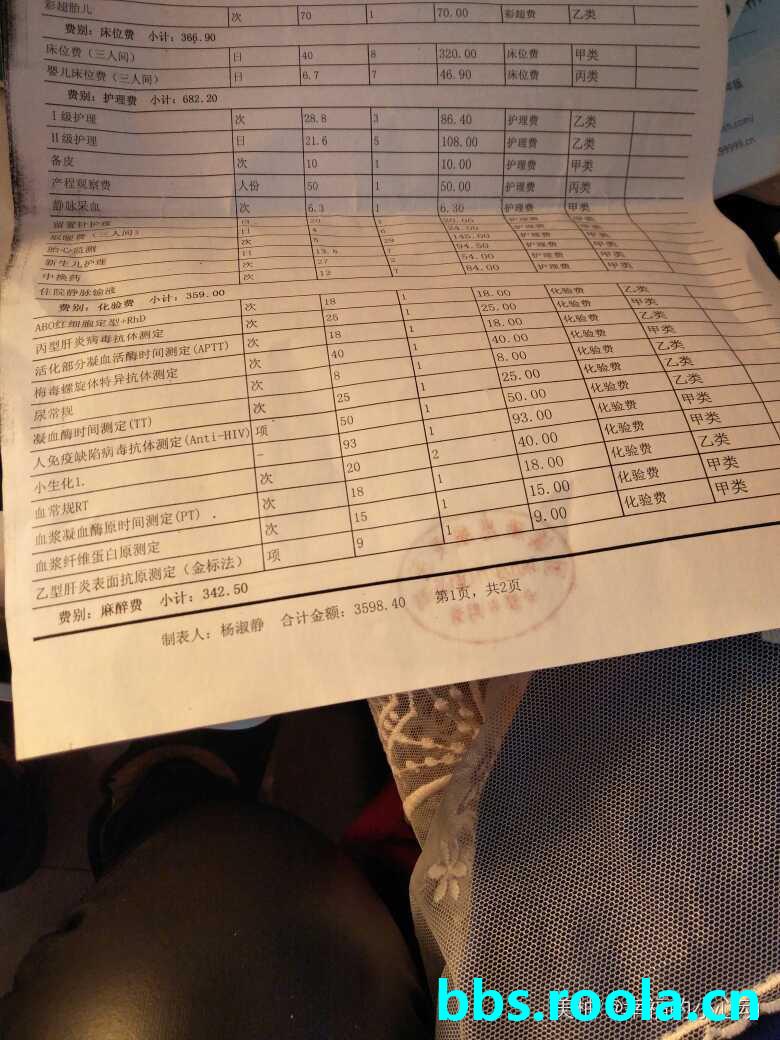 彩超胎儿 次 70 1 70.00 彩超费 乙类
费别：床位费 小计：366.90
床位费（三人间） 日 40 8 320.00 床位费 甲类
婴儿床位费（三人间） 日 6.7 7 46.90 床位费 丙类
费别：护理费 小计：682.20
Ⅰ级护理 次 28.8 3 86.40 护理费 乙类
Ⅱ级护理 日 21.6 5 108.00 护理费 乙类
备皮 次 10 1 10.00 护理费 甲类
产程观察费 人份 50 1 50.00 护理费 丙类
静脉采血 次 6.3 1 6.30 护理费 甲类
留置针护理 日 20 1 20.00 护理费 甲类
取暖费（三人间） 日 4 6 24.00 护理费
胎心监测 次 5 29 145.00 护理费 甲类
新生儿护理 日 13.5 7 94.50 护理费 甲类
中换药 次 27 2 54.00 护理费 甲类
住院静脉输液 次 12 7 84.00 护理费 甲类
费别：化验费 小计：359.00
ABO红细胞定型+RhD 次 18 1 18.00 化验费 乙类
丙型肝炎病毒抗体测定 次 25 1 25.00 化验费 甲类
活化部分凝血活酶时间测定(APTT) 次 18 1 18.00 化验费 乙类
梅毒螺旋体特异抗体测定 次 40 1 40.00 化验费 甲类
尿常规 次 8 1 8.00 化验费 乙类
凝血酶时间测定(TT) 次 25 1 25.00 化验费 乙类
人免疫缺陷病毒抗体测定(Anti-HIV) 项 50 1 50.00 化验费 甲类
小生化1. - 93 1 93.00 化验费 甲类
血常规RT 次 20 2 40.00 化验费 乙类
血浆凝血酶原时间测定(PT) 次 18 1 18.00 化验费 甲类
血浆纤维蛋白原测定 次 15 1 15.00 化验费 甲类
乙型肝炎表面抗原测定（金标法） 项 9 1 9.00
费别：麻醉费 小计：342.50
制表人：杨淑静 合计金额：3598.40 第1页，共2页
bbs.roola.cn